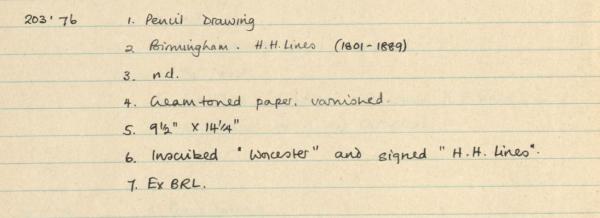 203'76 1. Pencil Drawing
2. Birmingham. H.H. Lines (1801-1889)
3. n.d.
4. Cream toned paper, varnished.
5. 9½" x 14¼"
6. Inscribed "Worcester" and signed "H.H. Lines".
7. Ex BRL.